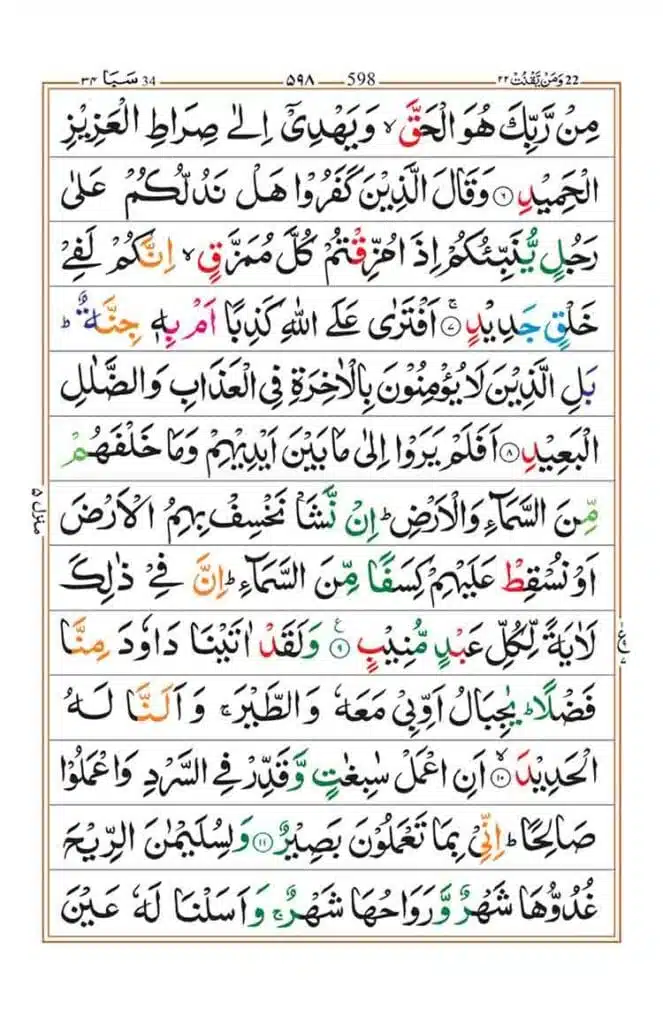 ۳۴ سَبَا 34 ۵۹۸ 598 ۲۲ وَمَنۡ يَّقۡنُتۡ 22
مِنۡ رَّبِّكَ هُوَ الۡحَـقَّ ۙ وَيَهۡدِىۡۤ اِلٰى صِرَاطِ الۡعَزِيۡزِ
الۡحَمِيۡدِ ۶ وَقَالَ الَّذِيۡنَ كَفَرُوۡا هَلۡ نَدُلُّكُمۡ عَلٰى
رَجُلٍ يُّنَبِّئُكُمۡ اِذَا مُزِّقۡتُمۡ كُلَّ مُمَزَّقٍ ۙ اِنَّكُمۡ لَفِىۡ
خَلۡقٍ جَدِيۡدٍ ۚ ۷ اَفۡتَرٰى عَلَى اللّٰهِ كَذِبًا اَمۡ بِهٖ جِنَّةٌ ؕ
بَلِ الَّذِيۡنَ لَا يُؤۡمِنُوۡنَ بِالۡاٰخِرَةِ فِى الۡعَذَابِ وَالضَّلٰلِ
الۡبَعِيۡدِ ۸ اَفَلَمۡ يَرَوۡا اِلٰى مَا بَيۡنَ اَيۡدِيۡهِمۡ وَمَا خَلۡفَهُمۡ
مِّنَ السَّمَآءِ وَالۡاَرۡضِ ؕ اِنۡ نَّشَاۡ نَخۡسِفۡ بِهِمُ الۡاَرۡضَ
اَوۡ نُسۡقِطۡ عَلَيۡهِمۡ كِسَفًا مِّنَ السَّمَآءِ ؕ اِنَّ فِىۡ ذٰلِكَ
لَاٰيَةً لِّكُلِّ عَبۡدٍ مُّنِيۡبٍ ۹ ع وَلَقَدۡ اٰتَيۡنَا دَاوٗدَ مِنَّا
فَضۡلًا ؕ يٰجِبَالُ اَوِّبِىۡ مَعَهٗ وَالطَّيۡرَ ۚ وَاَلَــنَّا لَـهُ
الۡحَدِيۡدَ ۙ ۱۰ اَنِ اعۡمَلۡ سٰبِغٰتٍ وَّقَدِّرۡ فِى السَّرۡدِ وَاعۡمَلُوۡا
صَالِحًا ؕ اِنِّىۡ بِمَا تَعۡمَلُوۡنَ بَصِيۡرٌ ۱۱ وَلِسُلَيۡمٰنَ الرِّيۡحَ
غُدُوُّهَا شَهۡرٌ وَّرَوَاحُهَا شَهۡرٌ ۚ وَاَسَلۡنَا لَهٗ عَيۡنَ
منزل ۵